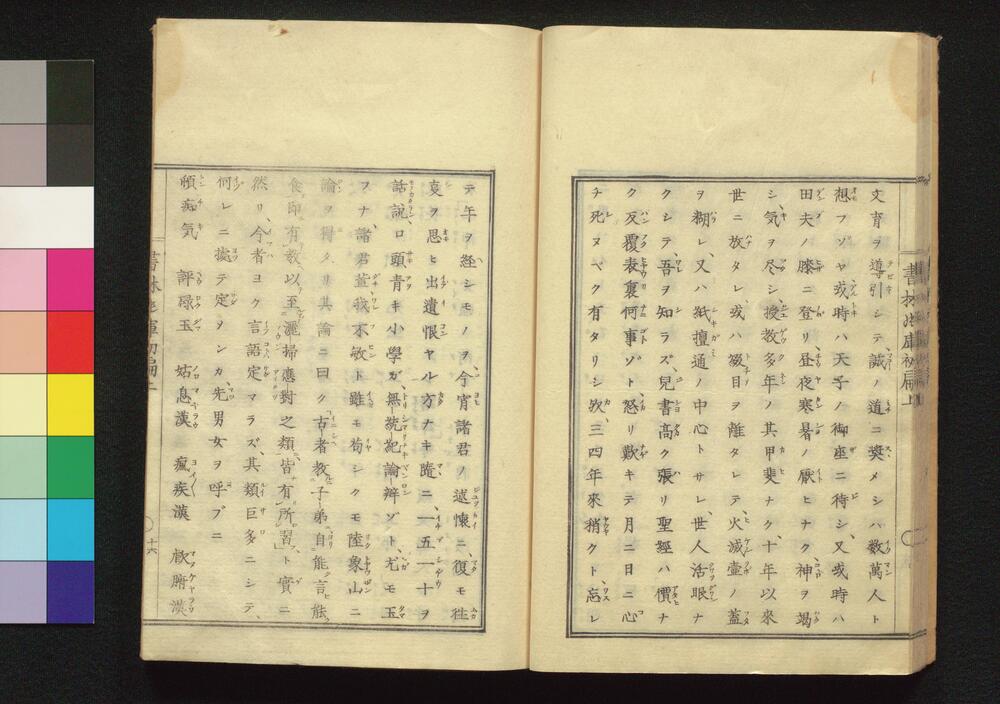 文育ヲ導引シテ誠ノ道ニ奬メシハ数萬人ト
想フゾヤ或時ハ天子ノ御座ニ待シ、又或時ハ
田夫ノ膝ニ登リ、昼夜寒暑ノ厭ヒナク、神ヲ竭
シ、気ヲ尽シ、授教多年ノ其甲斐ナク、十年以來
世ニ放タレ、或ハ綴目ヲ離タレテ、火滅壷ノ蓋
ヲ糊レ、又ハ紙擅通ノ中心トサレ、世人活眼ナ
クシテ、吾ヲ知ラズ、兒書高ク張リ聖經ハ價ナ
ク反覆表裏何事ゾト怒リ歎キテ月ニ日ニ心
チ死ヌベク有タリシ欤、三四年來稍クト忘レ
書林 庫初編上
テ年ヲ経シモノヲ、今宵諸君ノ述懐ニ、復モ往
哀ヲ思ヒ出遺恨ヤル方ナキ隨ニ、一五一十ヲ
話説、口頭青キ小學ガ、無統紀論辨ゾト、尤モ玉
フナ、諸君蓋我不敏ト雖モ苟シクモ陸象山ニ
論ヲ得タリ其論ニ曰ク古者教子弟自能言能
食即有教以至灑掃應對之類皆有所習ト實ニ
然リ、今者ヨク言語定マラズ、其類巨多ニシテ、
何レニ據テ定ヲンカ、先男女ヲ呼ブニ
頓痴気 評碌玉 姑息漢 瘋疾漢
書林 庫初編上
十六